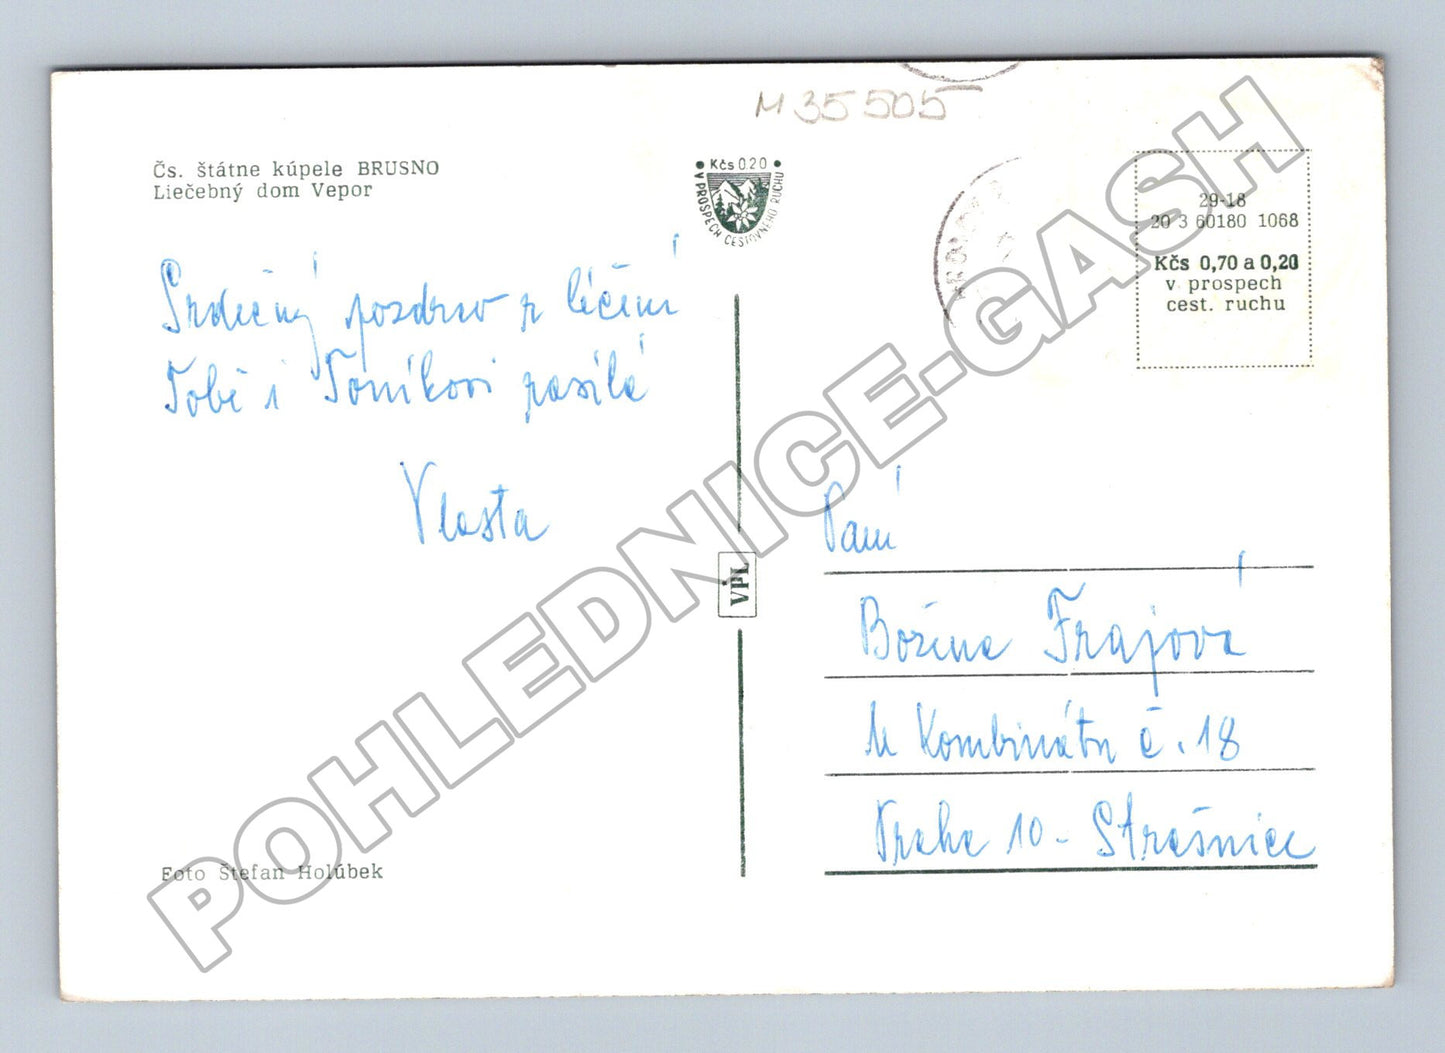 M 35 505
Čs. štátne kúpele BRUSNO
Liečebný dom Vepor
• Kčs 0.20 •
V PROSPECH CESTOVNÉHO RUCHU
29-18
20 3 60180 1068
Kčs 0,70 a 0,20
v prospech
cest. ruchu
Srdečný pozdrav z léčení
Tobě i Toníkovi zasílá
Vlasta
VPL
Paní
Božena Frajová
U Kombinátu č. 18
Praha 10 - Strašnice
Foto Štefan Holúbek
POHLEDNICE-GASH